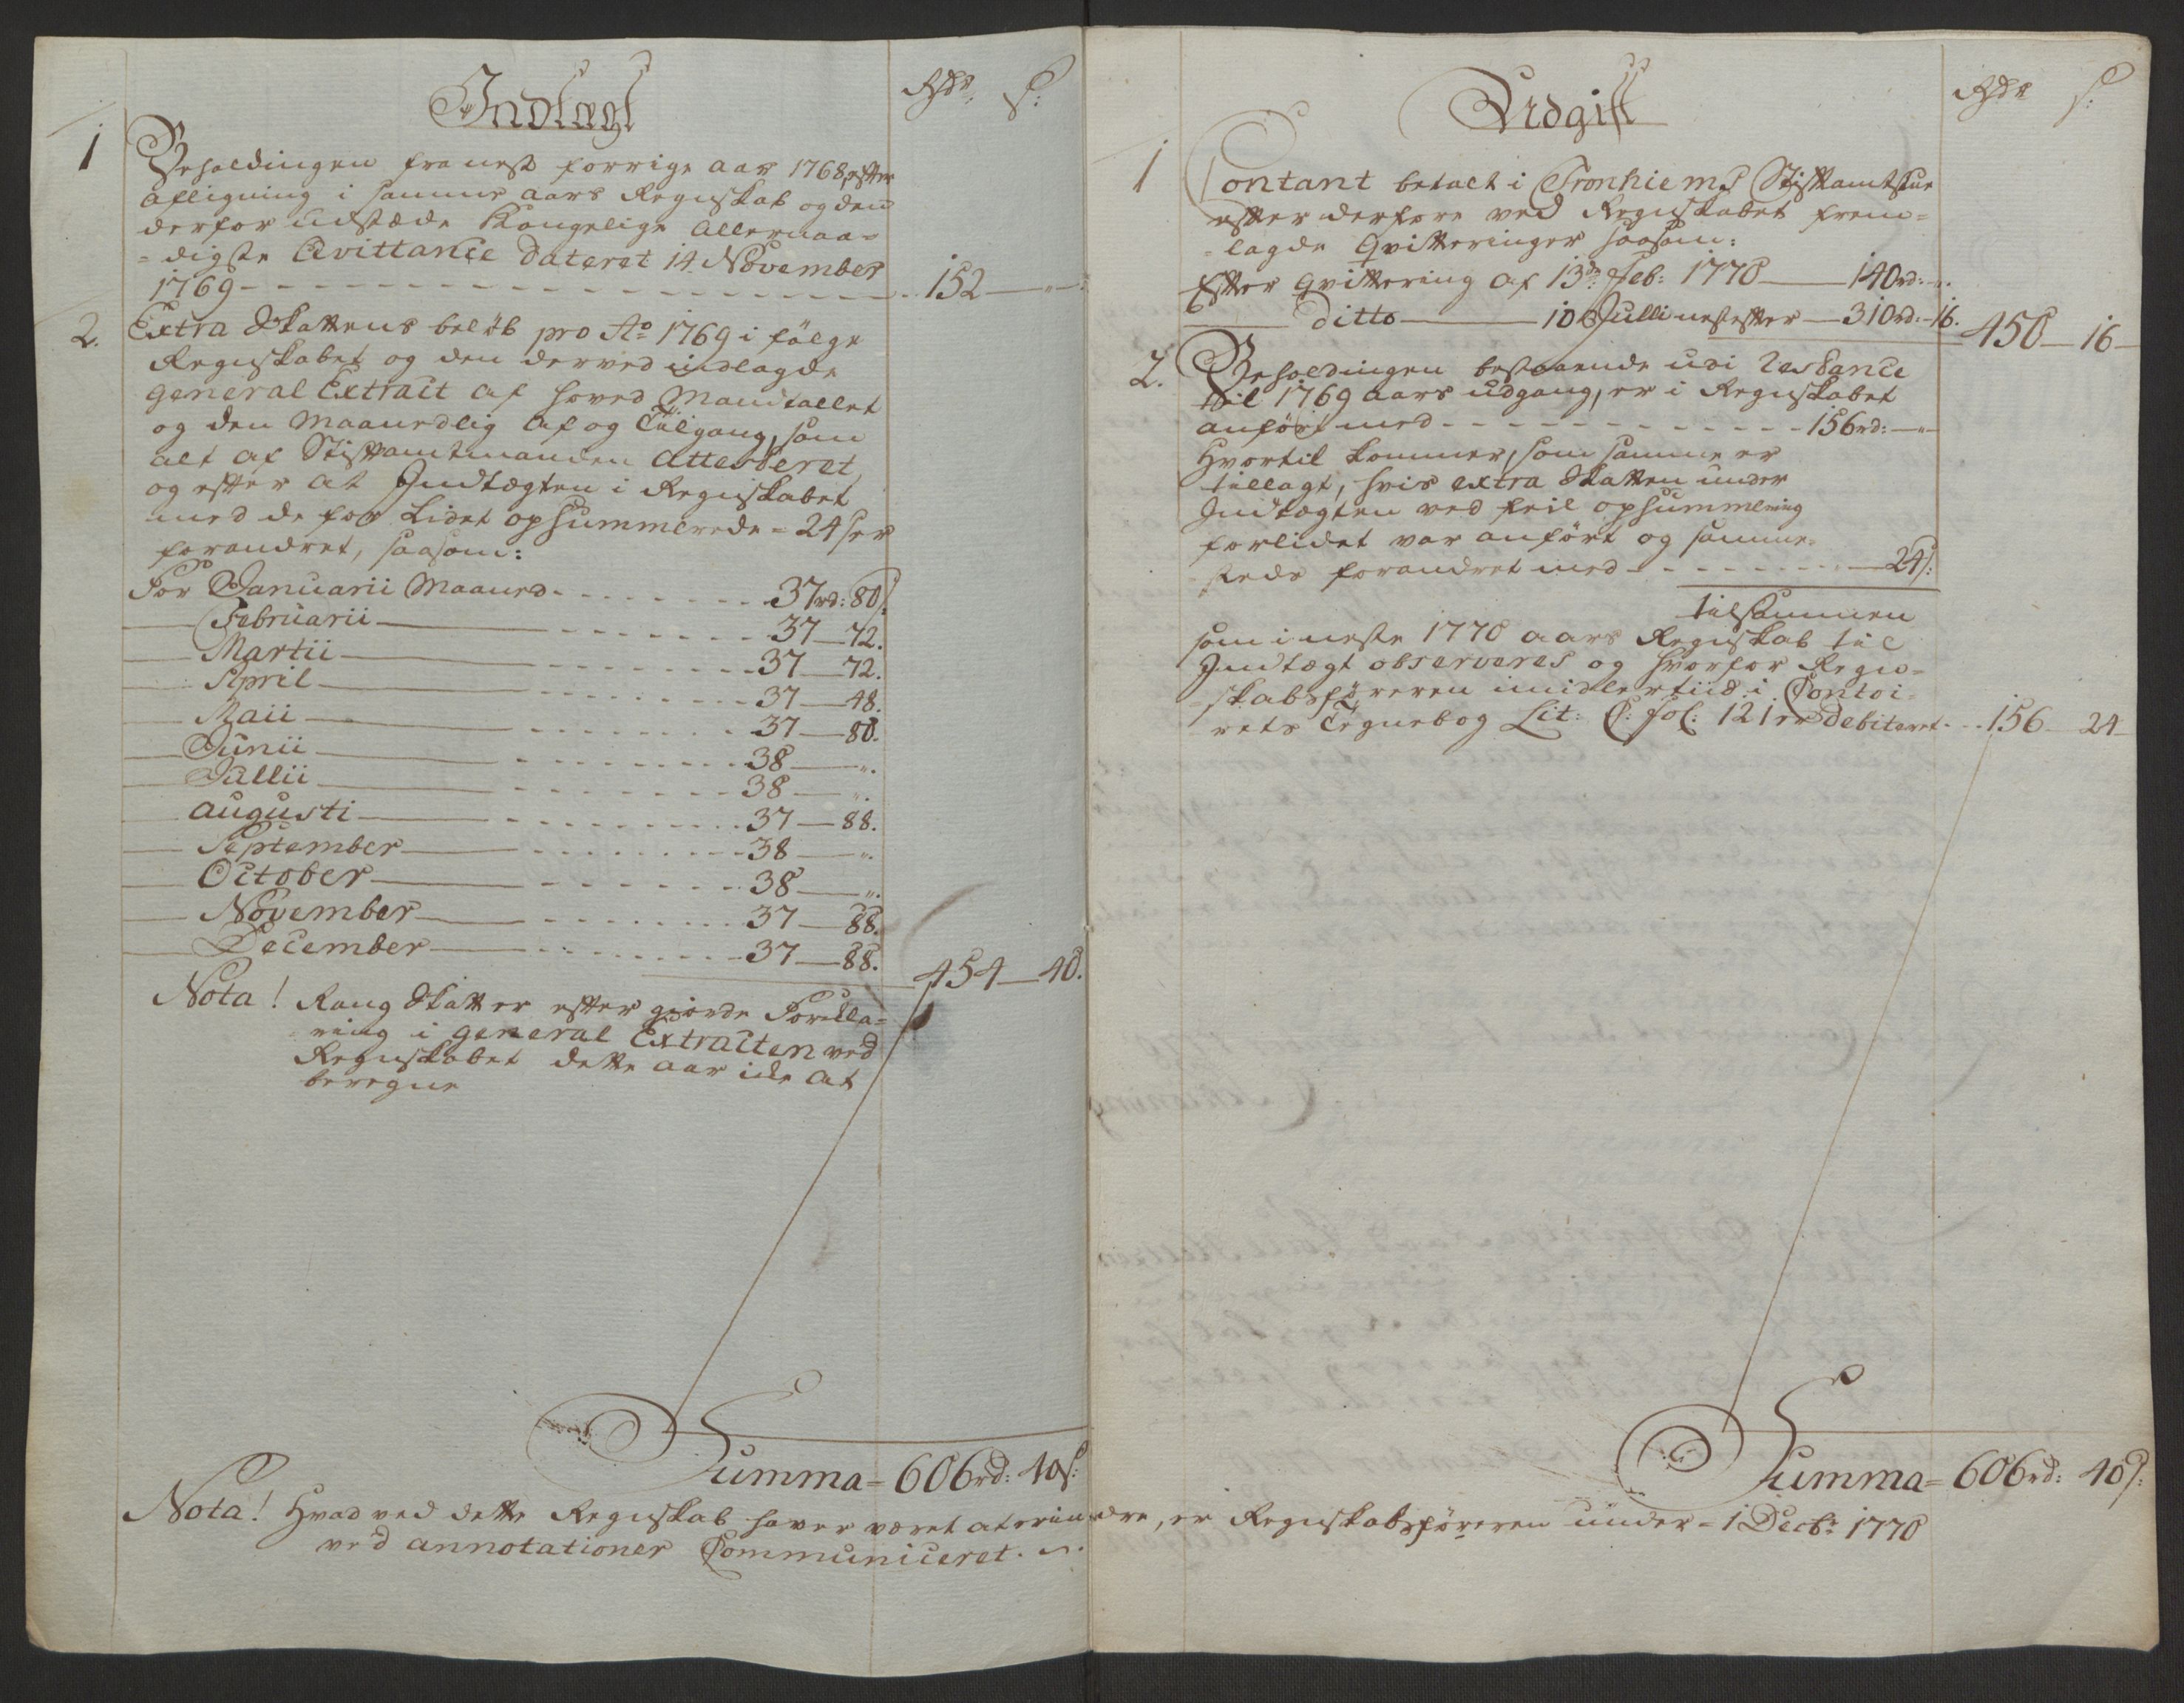 Indtægt
Rdr. s:
1 Beholdingen fra nest forrige aar 1768, efter
afligning i samme aars Regnskab og den
derfor udstæde Kongelige Allernaa=
=digste Qvittance dateret 14 November
1769 - - - 152 — „
2. Extra Skattens beløb pro Ao 1769 i følge
Regnskabet og den derved indlagde
general Extract af hoved Mandtallet
og den Maanedlig af og Tilgang, som
alt af Stiftamtmanden Attesteret,
og efter at Indtægten i Regnskabet
med de for Lidet opsummerede = 24 s er
forandret, saasom:
For Januarii Maaned - - - 37rd: 80s:
— Februarii — - - - 37 — 72.
— Martii — - - - 37 — 72.
— April — - - - 37 — 48.
— Maii — - - - 37 — 80.
— Junii — - - - 38 — „.
— Jullii — - - - 38 — „.
— Augusti — - - - 37 — 88.
— September — - - - 38 — „.
— October — - - - 38 — „.
— November — - - - 37 — 88.
— December — - - - 37 — 88.
454 — 40.
Nota! Rang Skatt er efter giorde Forkla=
ring i general Extracten ved
Regnskabet dette aar ikke at
beregne
Summa = 606rd: 40s:
Nota! Hvad ved dette Regnskab haver været at erindre, er Regnskabsføreren under = 1 Decbr 1770
ved annotationer Communiceret.
Udgift
Rdr s:
1 Contant betalt i Tronhiems Stiftamtstue
efter derfore ved Regnskabet frem=
=lagde Qvitteringer saasom:
Efter Qvittering af 13de Feb: 1770 — 140rd: „.
— ditto — 10 Julli nestefter — 310rd: 16.
450 — 16 —
2. Beholdingen bestaaende udi Restance
til 1769 aars udgang, er i Regnskabet
anført med - - - 156rd: — „
Hvortil kommer, som samme er
tillagt, hvis extra Skatten under
Indtægten ved feil opsummering
forlidet var anført og samme=
stede forandret med - - - 24s:
tilsammen
som i neste 1770 aars Regnskab til
Indtægt observeres og hvorfor Regn=
=skabsføreren imidlertiid i Contoi=
rets Tegnebog Lit: C: fol: 121 er Debiteret - - 156 — 24 —
Summa = 606rd: 40s: